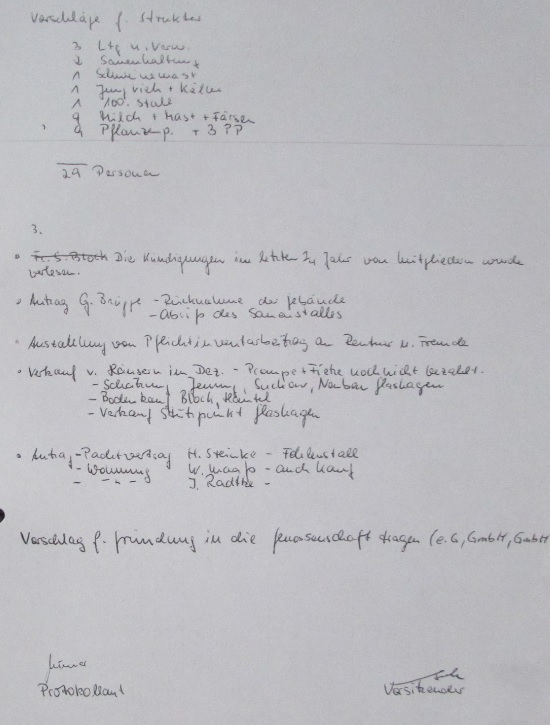 Vorschläge f. Struktur
3 Ltg u. Verw.
2 Sauenhaltung
1 Schweinemast
1 Jungvieh + Kälber
1 100. Stall
9 Milch + Mast + Färsen
9 Pflanzenp. + 3 PP
29 Personen
3.
Die Kündigungen im letzten 1/4 Jahr von Mitgliedern wurde
verlesen.
Antrag G. Brüppe - Rücknahme der Gebände
- Abriß des Sauenstalles
Auszahlung von Pflichtinventarbeitrag an Rentner u. Fremde
Verkauf v. Häusern im Dez. - noch nicht bezahlt.
- Schätzung Jenny, Suckow, Neubau Glashagen
- Bodenkauf Bloch, Häntel
- Verkauf Stützpunkt Glashagen
Antrag - Pachtvertrag H. Steinke - Fohlenstall
- Wohnung W. Maaß - auch Kauf
- " - J. Radtke -
Vorschlag f. Gründung in die Genossenschaft tragen (e.G, GmbH, GmbH
Protokollant
Vorsitzender